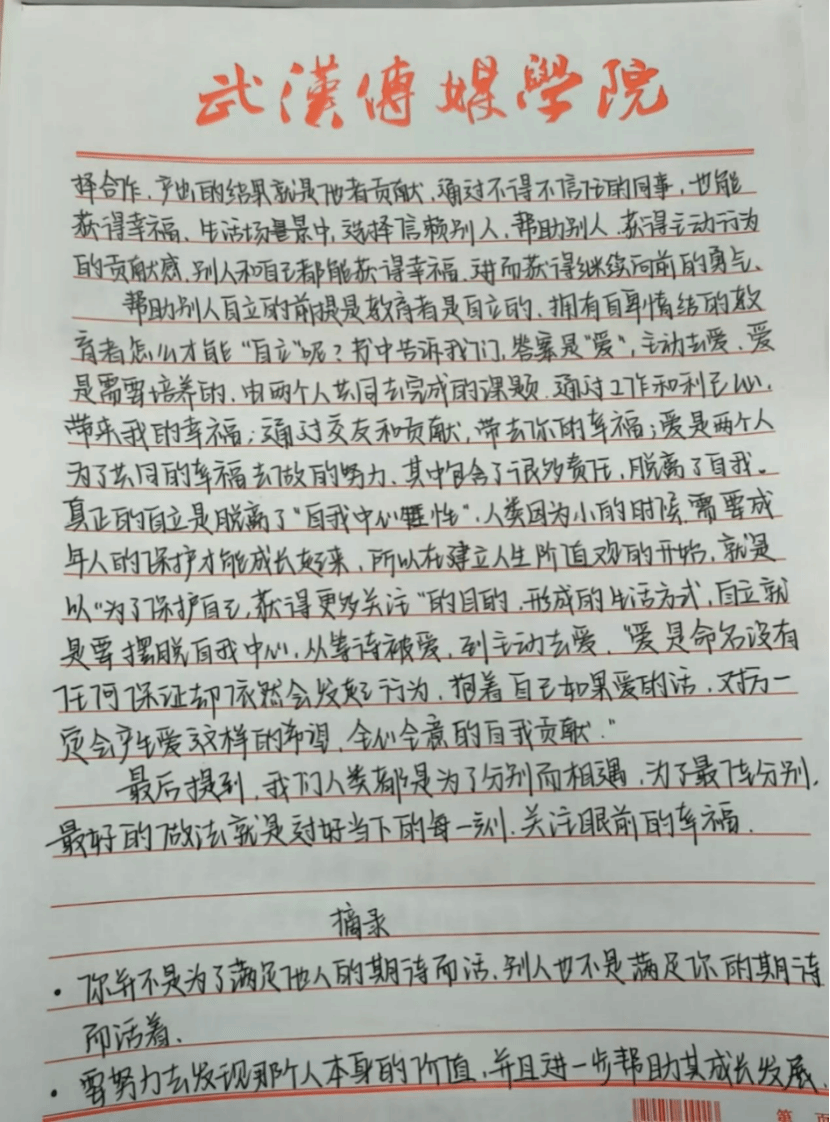 武漢傳媒學院
择合作，产出的结果就是他者贡献，通过不得不信任的同事，也能
获得幸福。生活场景中，选择信赖别人，帮助别人，获得主动行为
的贡献感，别人和自己都能获得幸福，进而获得继续向前的勇气。
帮助别人自立的前提是教育者是自立的，拥有自卑情结的教
育者怎么才能“自立”呢？书中告诉我们，答案是“爱”，主动去爱，爱
是需要培养的，由两个人共同去完成的课题，通过工作和利己心，
带来我的幸福；通过交友和贡献，带去你的幸福；爱是两个人
为了共同的幸福去做的努力，其中包含了很多责任，脱离了自我。
真正的自立是脱离了“自我中心性”，人类因为小的时候，需要成
年人的保护才能成长起来，所以在建立人生价值观的开始，就是
以“为了保护自己，获得更多关注”的目的，形成的生活方式，自立就
是要摆脱自我中心，从等待被爱，到主动去爱，“爱是命名没有
任何保证却依然会发起行为，抱着自己如果爱的话，对方一
定会产生爱这样的希望，全心全意的自我贡献。”
最后提到，我们人类都是为了分别而相遇，为了最佳分别，
最好的做法就是过好当下的每一刻，关注眼前的幸福。
摘录
· 你并不是为了满足他人的期待而活，别人也不是满足你的期待
而活着。
· 要努力去发现那个人本身的价值，并且进一步帮助其成长发展。
第 页